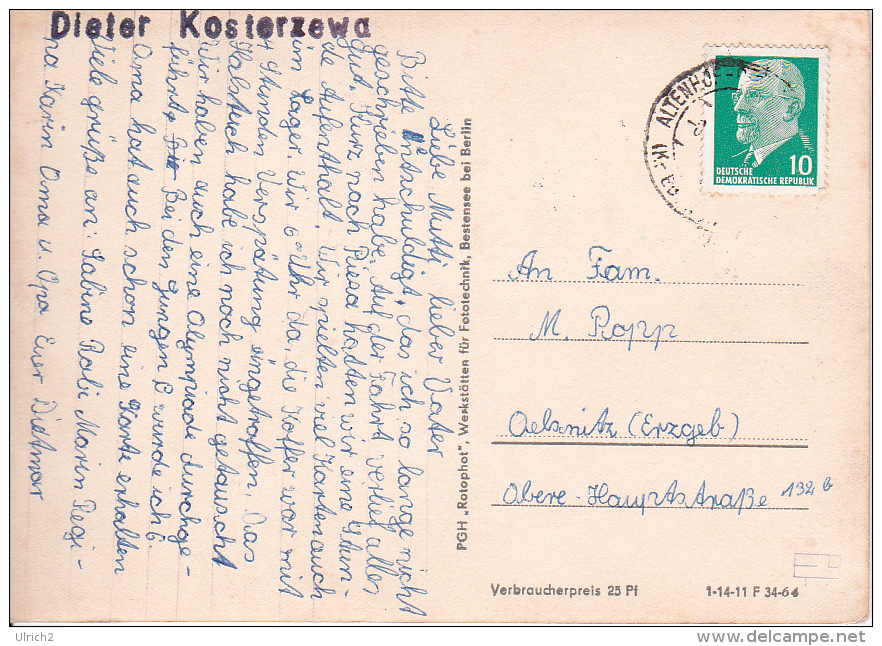 Dieter Kosterzewa
Liebe Mutti, lieber Vater
Bitte entschuldigt, das ich so lange nicht
geschrieben habe. Auf der Fahrt verlief alles
gut. Kurz nach Riesa hatten wir eine Stun-
de Aufenthalt. Wir spielten viel Karten auch
im Lager. Wir 6 Uhr da, die Koffer war mit
4 Stunden Verspätung eingetroffen. Das
Halstuch habe ich noch nicht getauscht
Wir haben auch eine Olympiade durchge-
führt. Bei den Jungen B wurde ich 6.
Oma hat auch schon eine Karte erhalten
Viele grüße an: Sabine Rabi Marin Regi-
na Karin Oma u. Opa Euer Dietmar
PGH „Rotophot", Werkstätten für Fototechnik, Bestensee bei Berlin
ALTENHOF
10
DEUTSCHE
DEMOKRATISCHE REPUBLIK
An Fam.
M. Popp
Oelsnitz (Erzgeb)
Obere-Hauptstraße 132 b
Verbraucherpreis 25 Pf
1-14-11 F 34-64
Ulrich2
delcampe.net